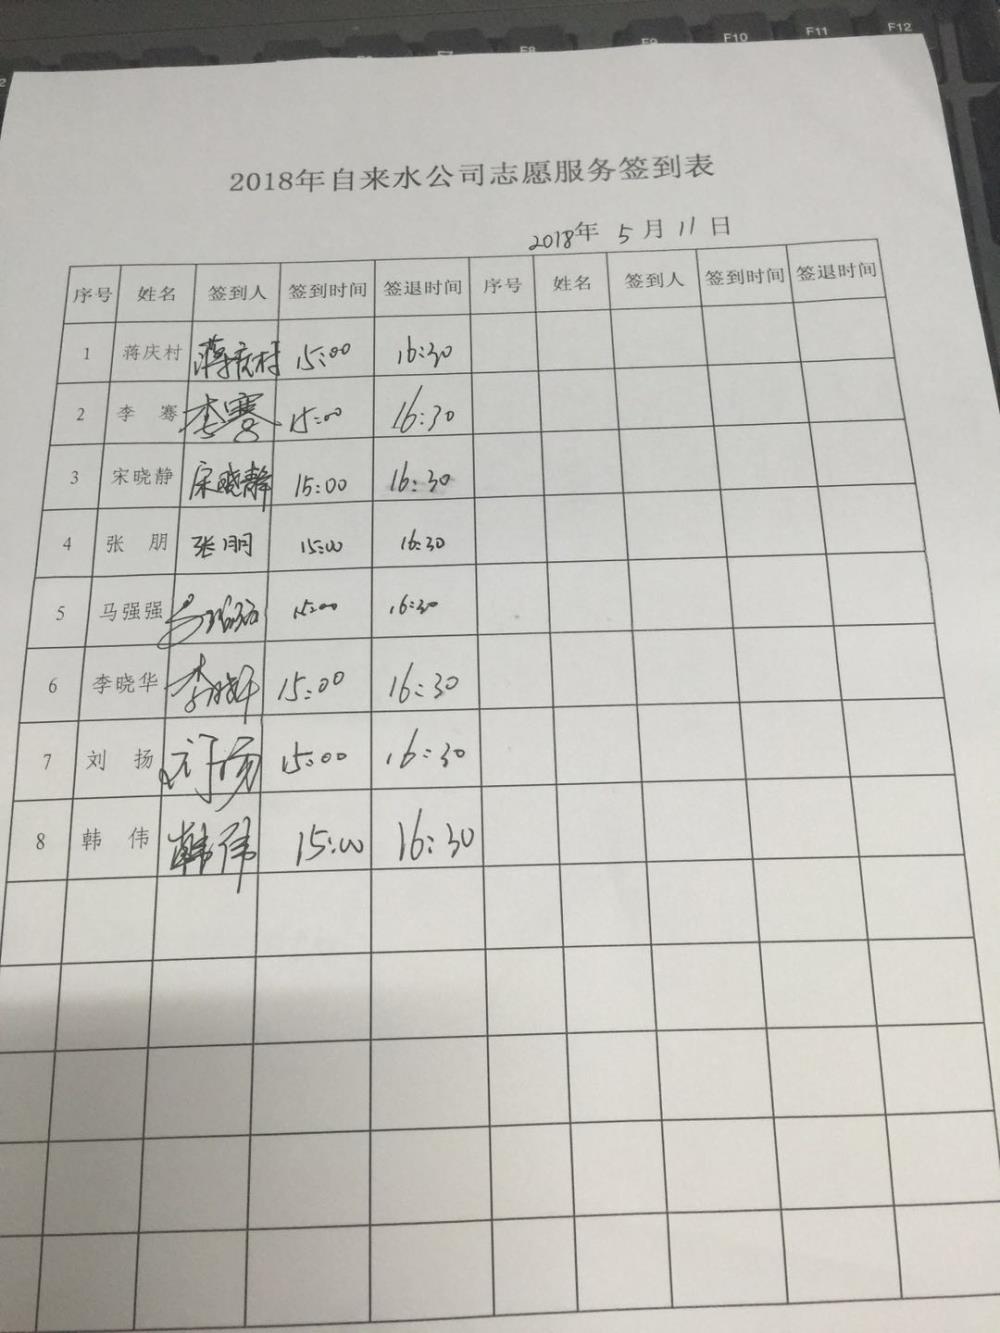 F7 F8 F9 F10 F11 F12
2018年自来水公司志愿服务签到表
2018年 5 月 11 日
序号 姓名 签到人 签到时间 签退时间 序号 姓名 签到人 签到时间 签退时间
1 蒋庆村 蒋庆村 15:00 16:30
2 李 骞 李骞 15:00 16:30
3 宋晓静 宋晓静 15:00 16:30
4 张 朋 张朋 15:00 16:30
5 马强强 马强强 15:00 16:30
6 李晓华 李晓华 15:00 16:30
7 刘 扬 刘扬 15:00 16:30
8 韩 伟 韩伟 15:00 16:30